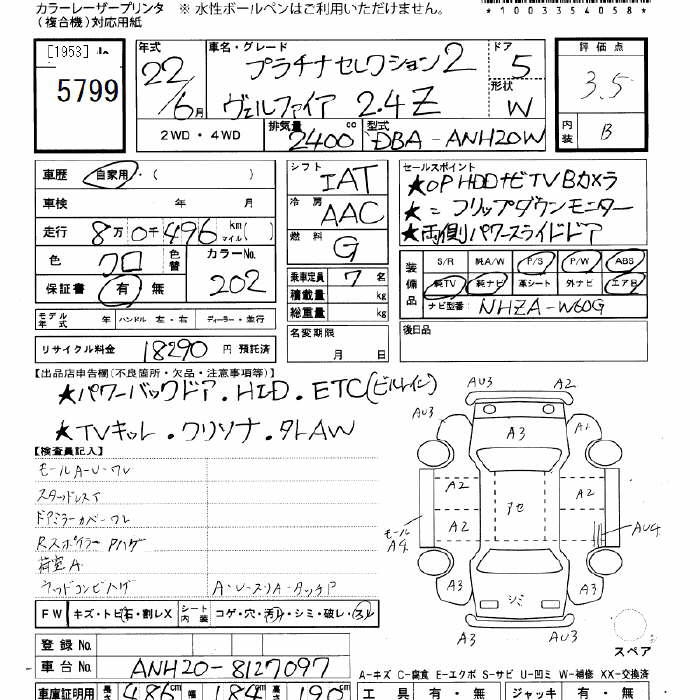 カラーレーザープリンタ ※ 水性ボールペンはご利用いただけません。
(複合機)対応用紙
*1003354058*
[1953]
5799
年式 車名・グレード ドア 評価点
22 プラチナセレクション2 5 3.5
6月 ヴェルファイア 2.4Z 形状 W
2WD・4WD 排気量 2400cc 型式 DBA-ANH20W 内装 B
車歴 自家用・( )
車検 年 月
走行 8万0千496km マイル( )
色 クロ 色替 カラーNo. 202
保証書 有 無
モデル年式 年 ハンドル 左・右 ディーラー・並行
リサイクル料金 18290円 預託済
シフト IAT
冷房 AAC
燃料 G
乗車定員 7名
積載量 kg
総重量 kg
名変期限 月 日
セールスポイント
★OP HDDナビTVBカメラ
★=フリップダウンモニター
★両側パワースライドドア
装備品 S/R 純A/W P/S P/W ABS
純TV 純ナビ 革シート 外ナビ エアB
ナビ型番: NHZA-W60G
後日品
【出品店申告欄(不良箇所・欠品・注意事項等)】
★パワーバックドア.HID.ETC(ビルトイン)
★TVキット.クリソナ.タレAW
【検査員記入】
モールA・U・ワレ
スタッドレスT
ドアミラーカバーワレ
Rスポイラー Pハゲ
荷室A
ウッドコンビハゲ A・U・スリA・タッチP
FW キズ・トビ石・割レX シート内装 コゲ・穴・汚レ・シミ・破レ・スレ
登録No.
車台No. ANH20-8127097
車庫証明用 長さ 486cm 幅 184cm 高さ 190cm
AU3 A2
AU3 A3 A1
A2 A2
A2 A2
モール A4 AU4
A3 シミ A3
AU3
スペア
A-キズ C-腐食 E-エクボ S-サビ U-凹ミ W-補修 XX-交換済
工具 有・無 ジャッキ 有・無